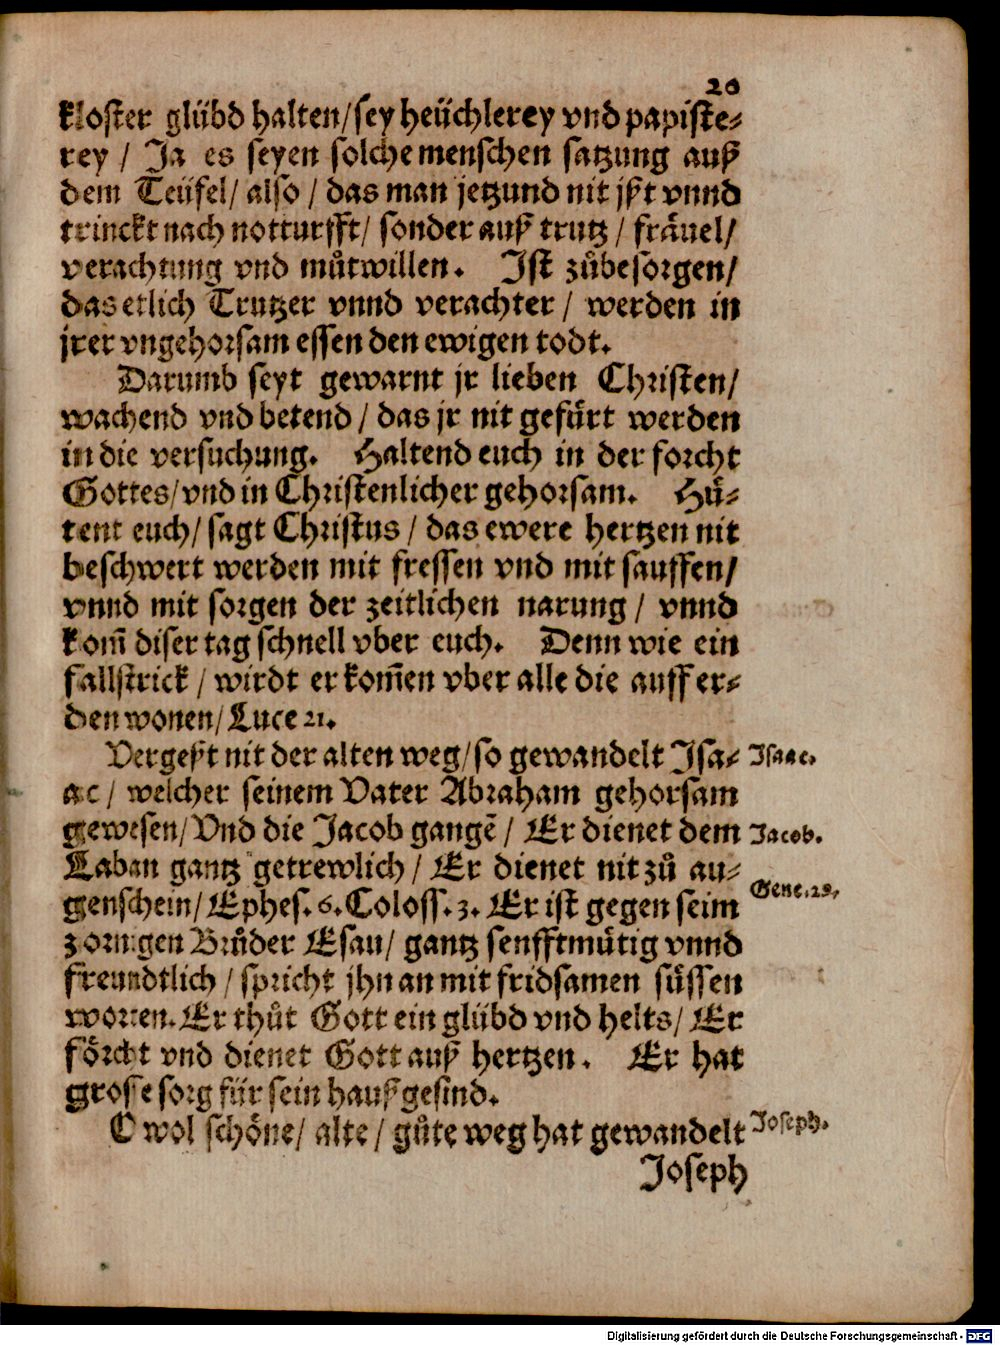 20
kloster glübd halten/ sey heüchlerey vnd papiste⸗
rey / Ja es seyen solche menschen satzung auß
dem Teüfel/ also / das man jetzund nit jßt vnnd
trinckt nach notturfft/ sonder auß trutz / fräuel/
verachtung vnd můtwillen. Ist zůbesorgen/
das etlich Trutzer vnnd verachter / werden in
jrer vngehorsam essen den ewigen todt.
Darumb seyt gewarnt jr lieben Christen/
wachend vnd betend / das jr nit gefürt werden
in die versuchung. Haltend euch in der forcht
Gottes/ vnd in Christenlicher gehorsam. Hü⸗
tent euch/ sagt Christus / das ewere hertzen nit
beschwert werden mit fressen vnd mit sauffen/
vnnd mit sorgen der zeitlichen narung / vnnd
kom̃ diser tag schnell vber euch. Denn wie ein
fallstrick / wirdt er kom̃en vber alle die auff er⸗
den wonen/ Luce 21.
Vergeßt nit der alten weg/ so gewandelt Isa⸗
Isaac.
ac / welcher seinem Vater Abraham gehorsam
gewesen/ Vnd die Jacob gangẽ / Er dienet dem
Jacob.
Laban gantz getrewlich / Er dienet nit zů au⸗
Gene. 29,
genschein/ Ephes. 6. Coloss. 3. Er ist gegen seim
zornigen Brůder Esau/ gantz senfftmütig vnnd
freundtlich / spricht jhn an mit fridsamen süssen
worten. Er thůt Gott ein glübd vnd helts/ Er
förcht vnd dienet Gott auß hertzen. Er hat
grosse sorg für sein haußgesind.
O wol schöne/ alte / gůte weg hat gewandelt
Joseph.
Joseph
Digitalisierung gefördert durch die Deutsche Forschungsgemeinschaft - DFG